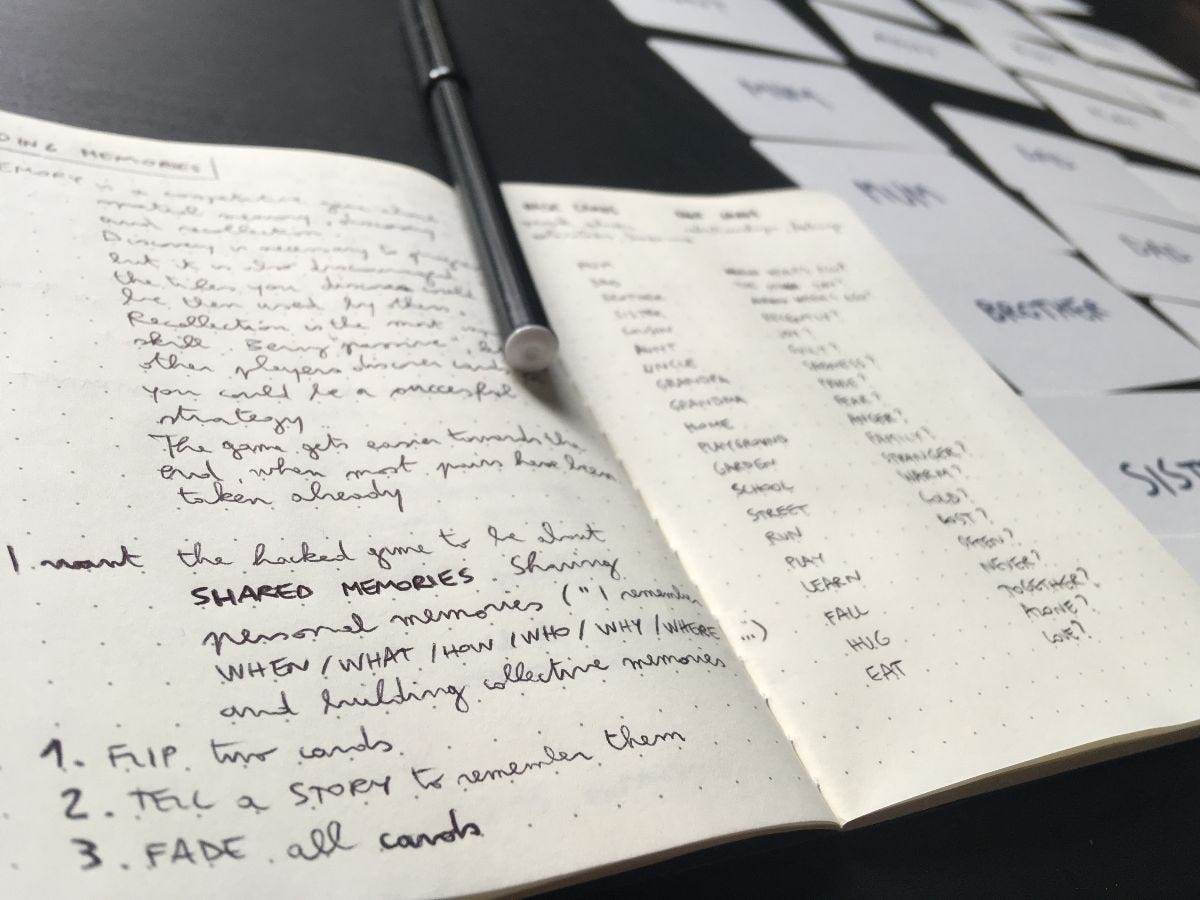 DING MEMORIES
EMORY is a competitive game about
spatial memory, discovery
and recollection.
Discovery is necessary to
but it is also discouraged
the tiles you discover could
be then used by them.
Recollection is the most
skill. Being "passive",
other players discover cards
you could be a successful
strategy
The game gets easier towards the
end, when most pairs have been
taken already
I want the hacked game to be about
SHARED MEMORIES. Sharing
personal memories ("I remember
WHEN/WHAT/HOW/WHO/WHY/WHERE ...)
and building collective memories
1. FLIP two cards
2. TELL a STORY to remember them
3. FADE all cards
MUM
DAD
BROTHER
SISTER
COUSIN
AUNT
UNCLE
GRANDPA
GRANDMA
HOME
PLAYGROUND
GARDEN
SCHOOL
STREET
RUN
PLAY
LEARN
FALL
HUG
EAT
RECENTLY?
JOY?
GUILT?
SADNESS?
FEAR?
ANGER?
FAMILY?
STRANGER?
WARM?
COLD?
LOST?
OFTEN?
NEVER?
TOGETHER?
ALONE?
LOVE?
MUM
MUM
DAD
DAD
BROTHER
SIST